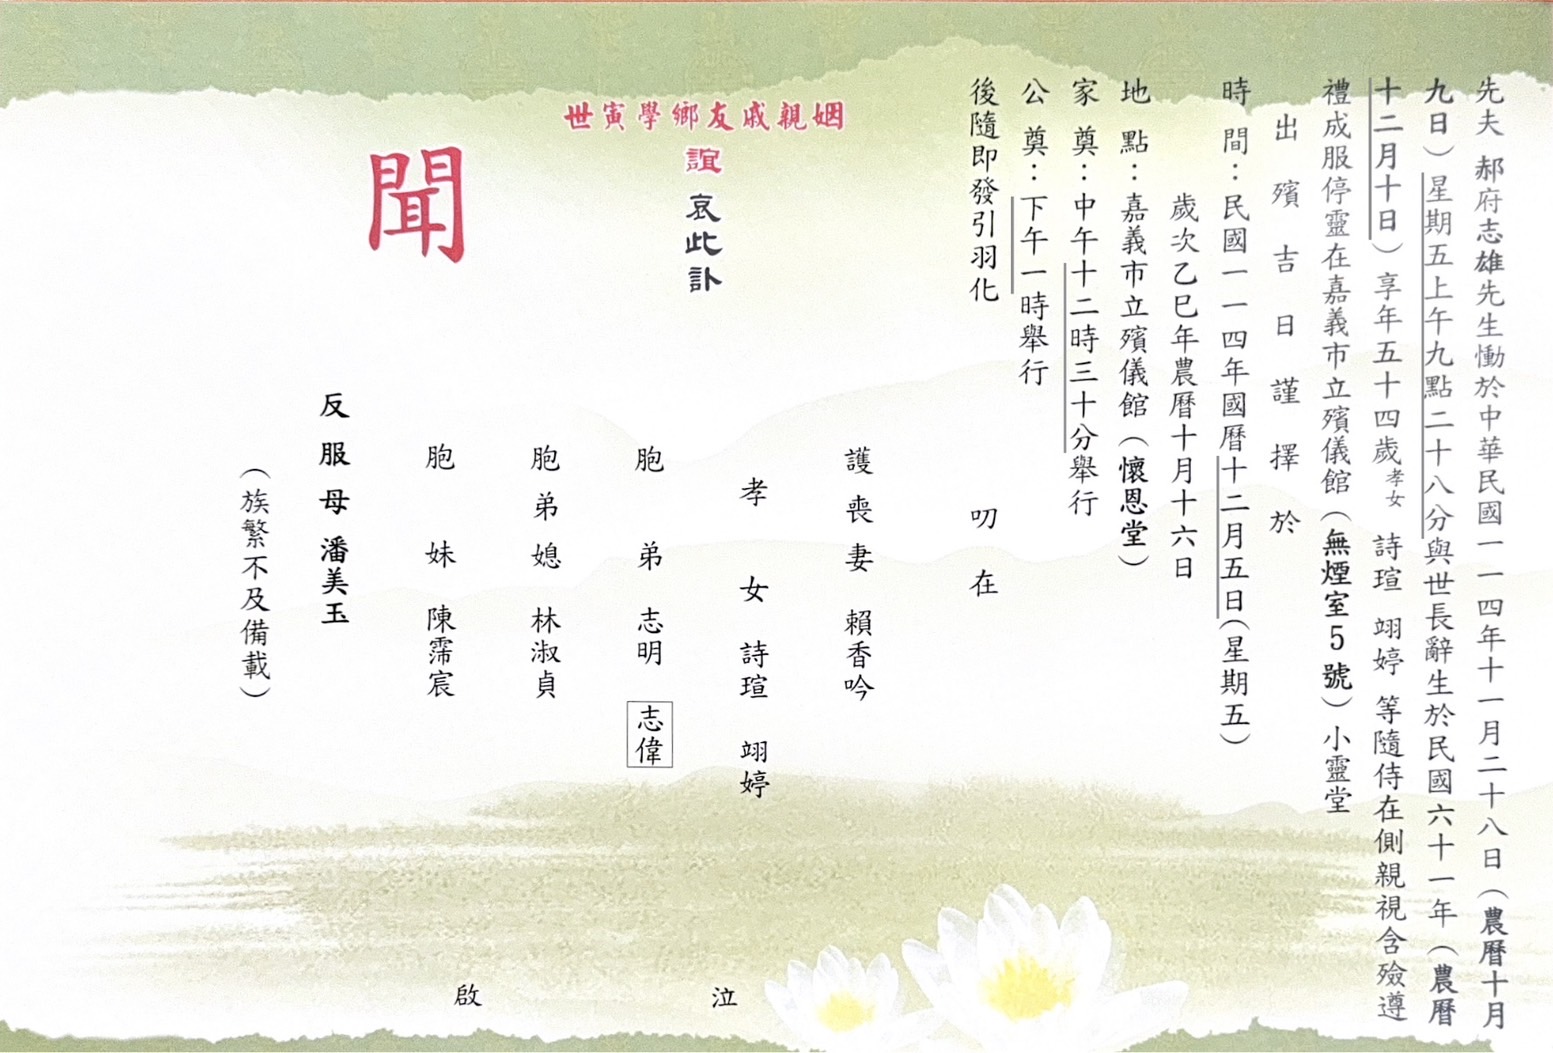 先夫 郝府志雄先生慟於中華民國一一四年十一月二十八日（農曆十月
九日）星期五上午九點二十八分與世長辭生於民國六十一年（農曆
十二月十日）享年五十四歲孝女 詩瑄 翊婷 等隨侍在側親視含殮遵
禮成服停靈在嘉義市立殯儀館（無煙室5號）小靈堂
出殯吉日謹擇於
時間：民國一一四年國曆十二月五日（星期五）
歲次乙巳年農曆十月十六日
地點：嘉義市立殯儀館（懷恩堂）
家奠：中午十二時三十分舉行
公奠：下午一時舉行
後隨即發引羽化
叨在
姻親戚友鄉學寅世
誼
哀此訃
聞
護喪妻 賴香吟
孝女 詩瑄 翊婷
胞弟 志明 志偉
胞弟媳 林淑貞
胞妹 陳霈宸
反服母 潘美玉
（族繁不及備載）
泣
啟